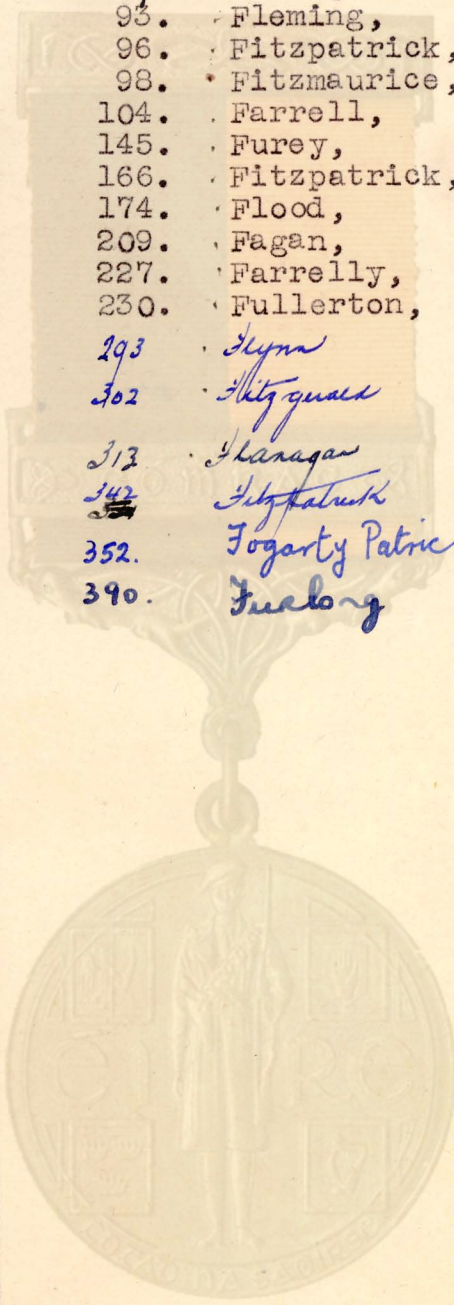 93. Fleming,
96. Fitzpatrick,
98. Fitzmaurice,
104. Farrell,
145. Furey,
166. Fitzpatrick,
174. Flood,
209. Fagan,
227. Farrelly,
230. Fullerton,
293 Flynn
302 Fitzgerald
313 Flanagan
342 Fitzpatrick
352. Fogarty Patric
390. Furlong